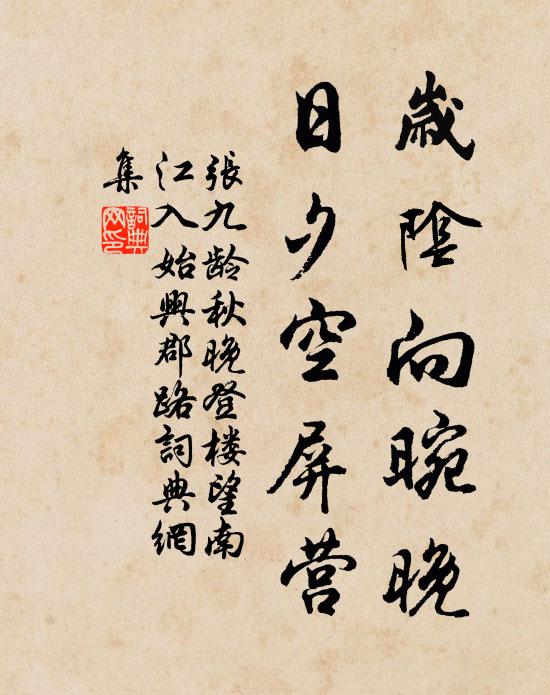 歲陰向晼晚
日夕空屏营
張九龄秋晚登楼望南
江入始興郡路詞典網
集
詞典
网印